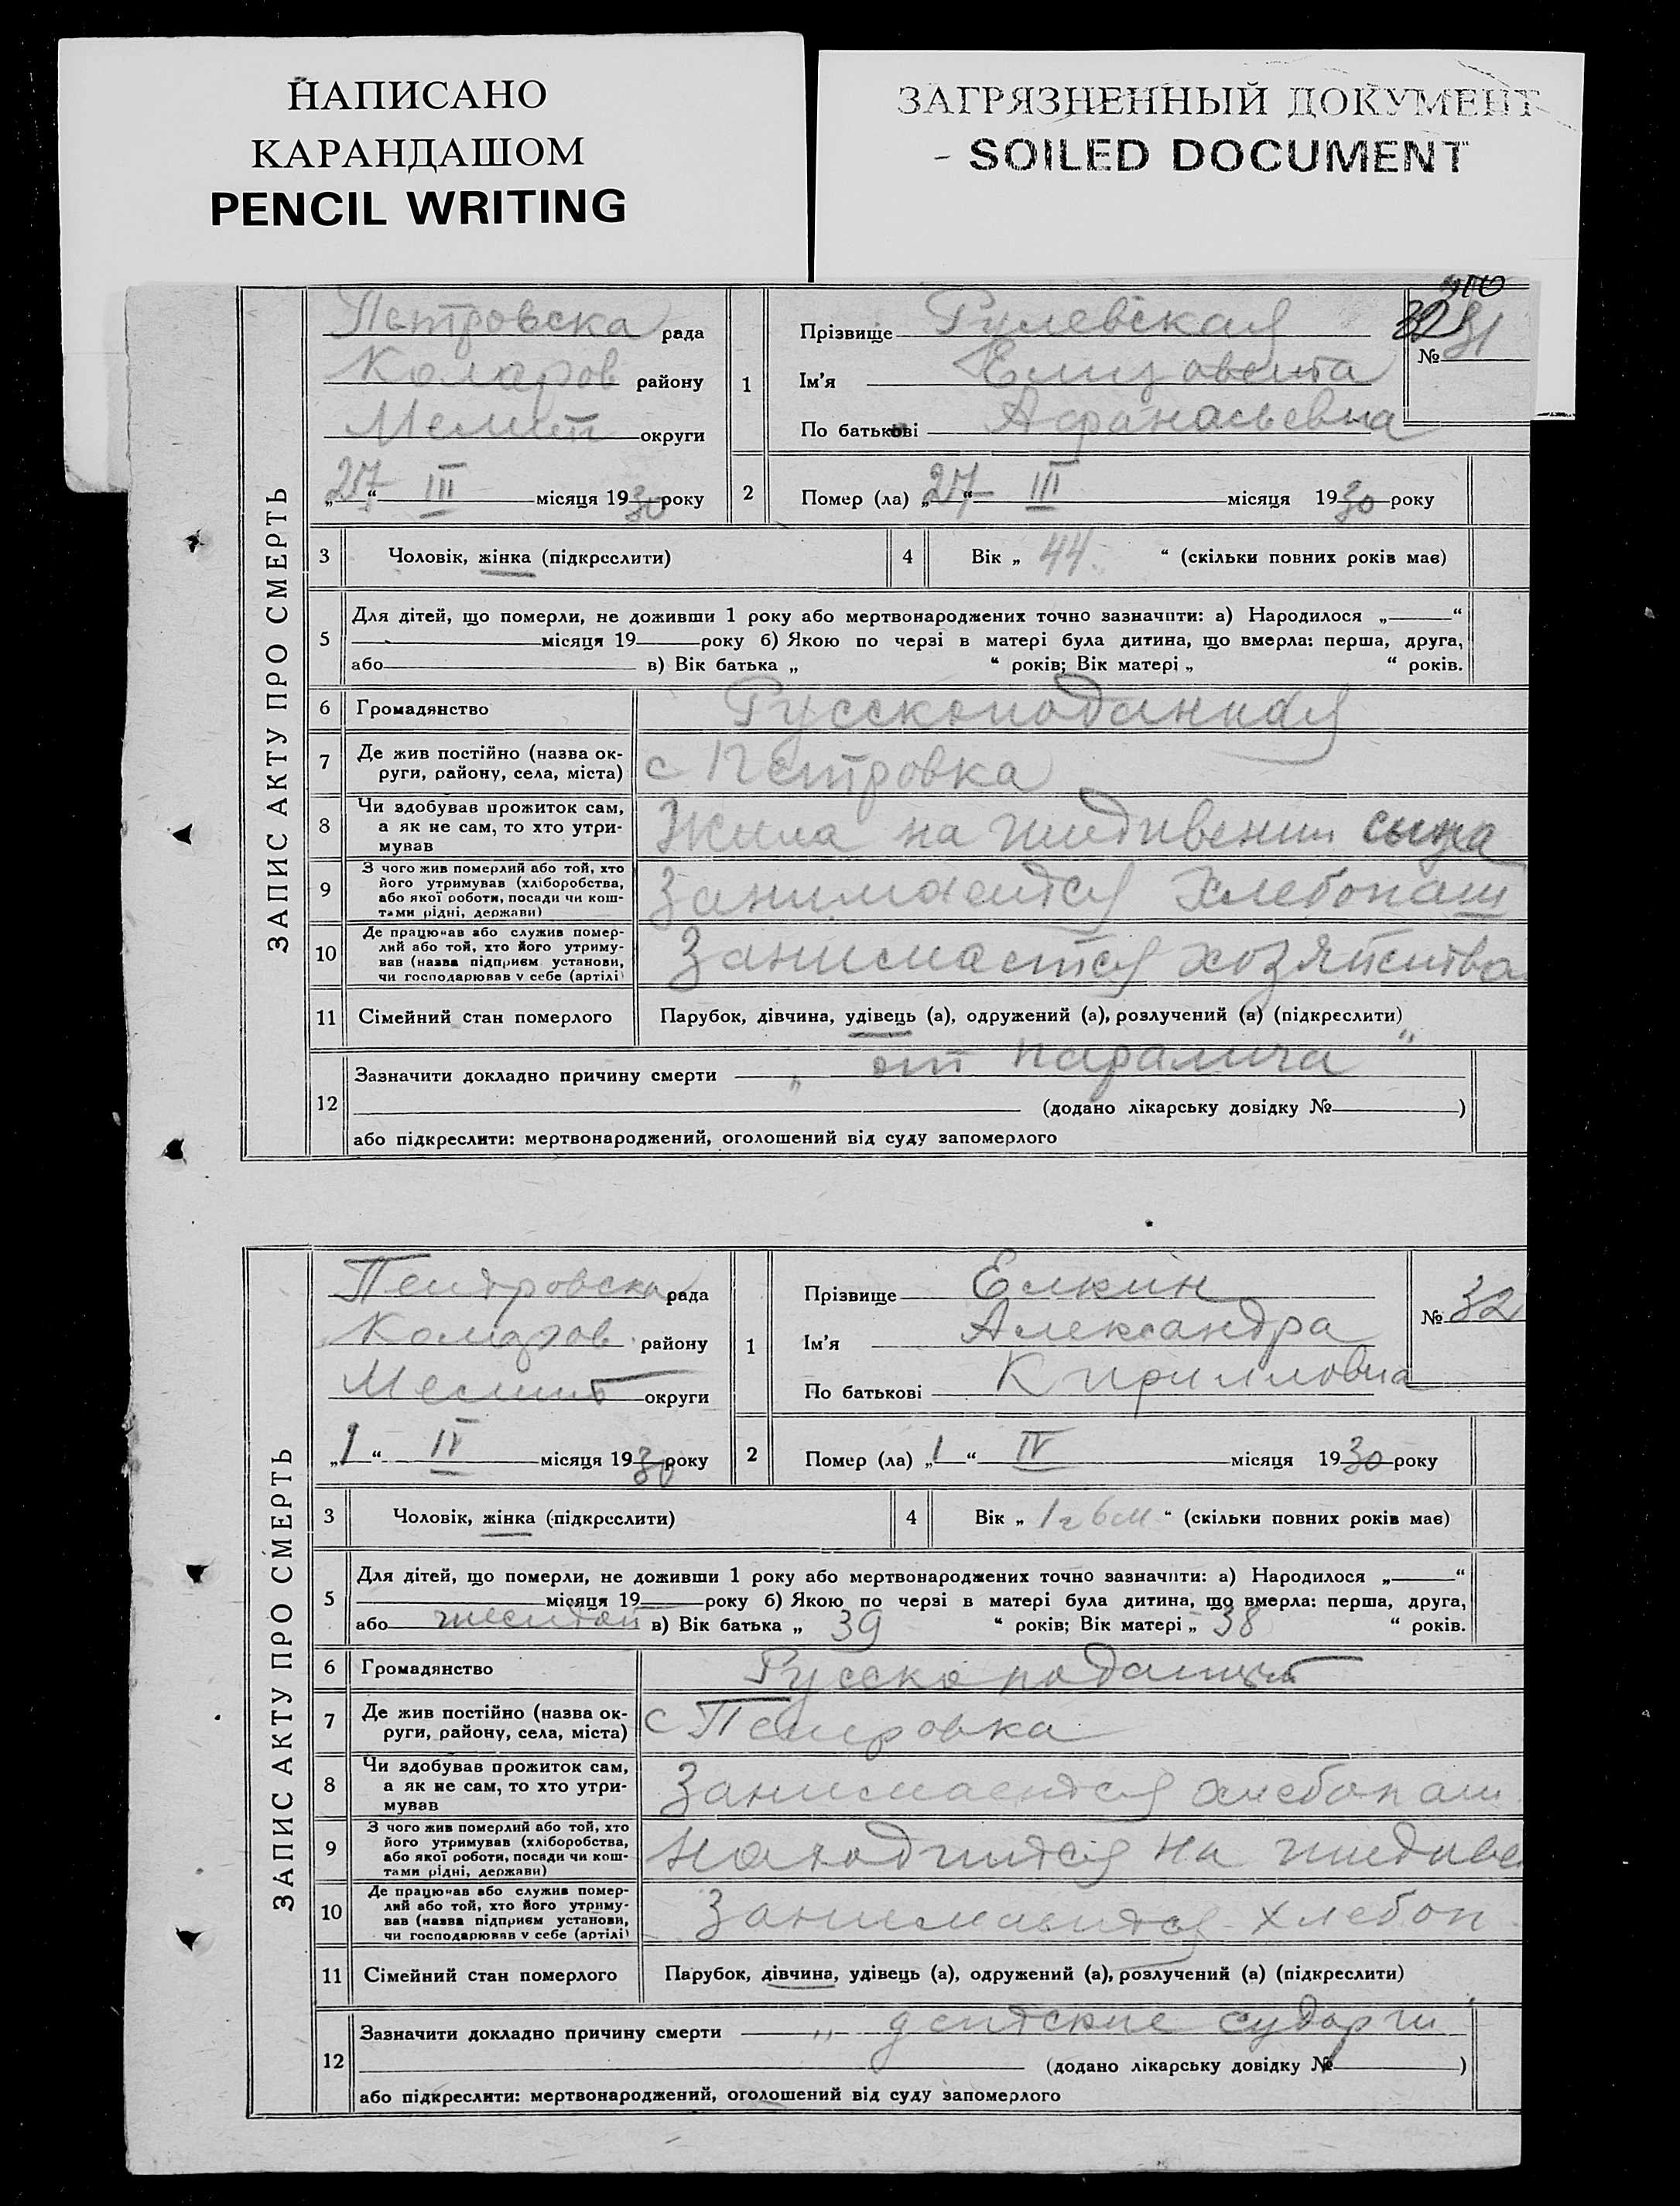 НАПИСАНО
КАРАНДАШОМ
PENCIL WRITING
ЗАГРЯЗНЕННЫЙ ДОКУМЕНТ
- SOILED DOCUMENT
ЗАПИС АКТУ ПРО СМЕРТЬ
Петровска рада
Коларов району
Мелит округи
„27“ III місяця 1930 року
1
Прізвище Рулевская
Ім'я Елизавета
По батькові Афанасьевна
№ 31
32
2
Помер (ла) „27“ III місяця 1930 року
3
Чоловік, жінка (підкреслити)
4
Вік „ 44 “ (скільки повних років має)
5
Для дітей, що померли, не доживши 1 року або мертвонароджених точно зазначити: а) Народилося „ “
місяця 19 року б) Якою по черзі в матері була дитина, що вмерла: перша, друга,
або в) Вік батька „ “ років; Вік матері „ “ років.
6
Громадянство
Русскоподанная
7
Де жив постійно (назва ок-
руги, району, села, міста)
с Петровка
8
Чи здобував прожиток сам,
а як не сам, то хто утри-
мував
Жила на иждивении сына
9
З чого жив померлий або той, хто
його утримував (хліборобства,
або якої роботи, посади чи кош-
тами рідні, держави)
Занимается хлебопаш
10
Де працював або служив помер-
лий або той, хто його утриму-
вав (назва підприєм установи,
чи господарював у себе (артілі)
Занимается хозяйства
11
Сімейний стан померлого
Парубок, дівчина, удівець (а), одружений (а), розлучений (а) (підкреслити)
12
Зазначити докладно причину смерти „ от паралича “
(додано лікарську довідку № )
або підкреслити: мертвонароджений, оголошений від суду запомерлого
ЗАПИС АКТУ ПРО СМЕРТЬ
Петровска рада
Коларов району
Мелит округи
„1“ IV місяця 1930 року
1
Прізвище Елкин
Ім'я Александра
По батькові Кирилловна
№ 32
2
Помер (ла) „1“ IV місяця 1930 року
3
Чоловік, жінка (підкреслити)
4
Вік „ 1г 6м “ (скільки повних років має)
5
Для дітей, що померли, не доживши 1 року або мертвонароджених точно зазначити: а) Народилося „ “
місяця 19 року б) Якою по черзі в матері була дитина, що вмерла: перша, друга,
або шестой в) Вік батька „ 39 “ років; Вік матері „ 38 “ років.
6
Громадянство
7
Де жив постійно (назва ок-
руги, району, села, міста)
с Петровка
8
Чи здобував прожиток сам,
а як не сам, то хто утри-
мував
Занимается хлебопаш
9
З чого жив померлий або той, хто
його утримував (хліборобства,
або якої роботи, посади чи кош-
тами рідні, держави)
находится на иждиве
10
Де працював або служив помер-
лий або той, хто його утриму-
вав (назва підприєм установи,
чи господарював у себе (артілі)
Занимается хлебоп
11
Сімейний стан померлого
Парубок, дівчина, удівець (а), одружений (а), розлучений (а) (підкреслити)
12
Зазначити докладно причину смерти „ детские судорги
(додано лікарську довідку № )
або підкреслити: мертвонароджений, оголошений від суду запомерлого